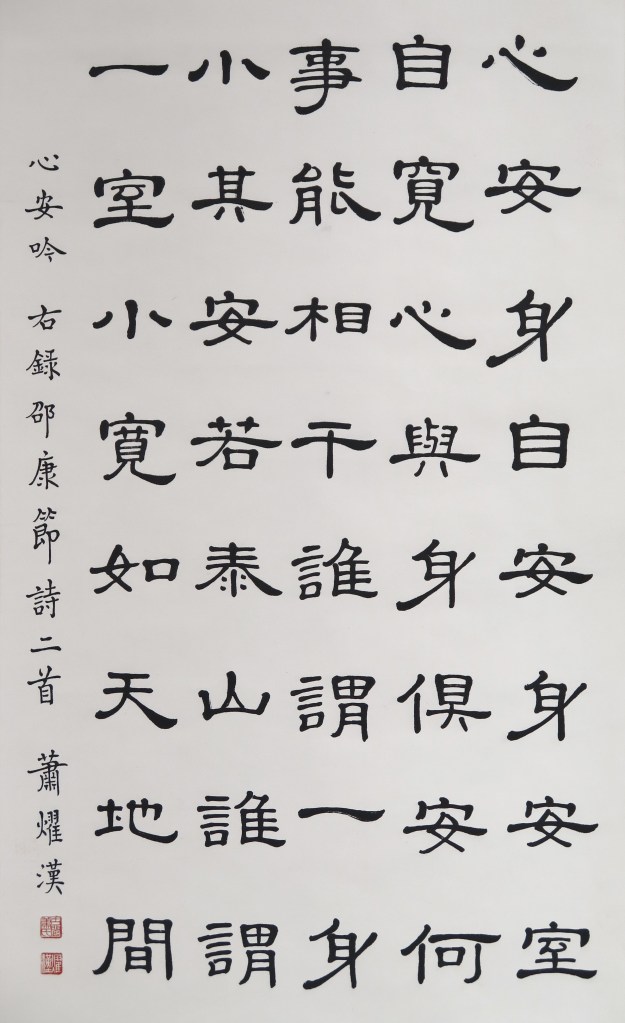 心安身自安身安室
自寬心與身俱安何
事能相干誰謂一身
小其安若泰山誰謂
一室小寬如天地間
心安吟 右錄邵康節詩二首 蕭燿漢